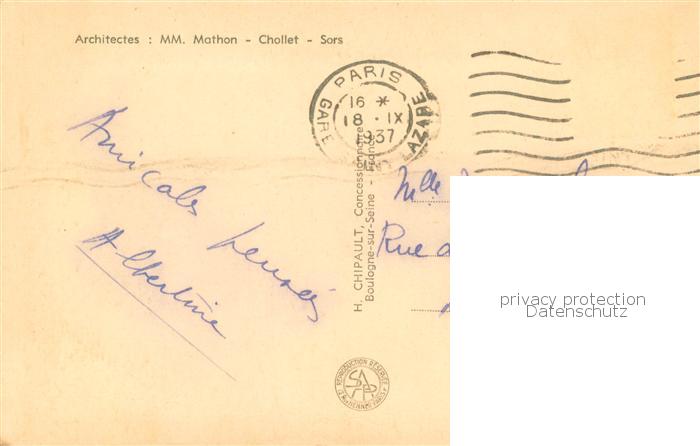 Architectes : MM. Mathon - Chollet - Sors
PARIS
GARE
LAZARE
16 *
18 · IX
1937
Amicales pensées
Albertine
H. CHIPAULT, Concessionnaire
Boulogne-sur-Seine - France
Mlle
Rue
privacy protection
Datenschutz
REPRODUCTION RÉSERVÉE
SAPP